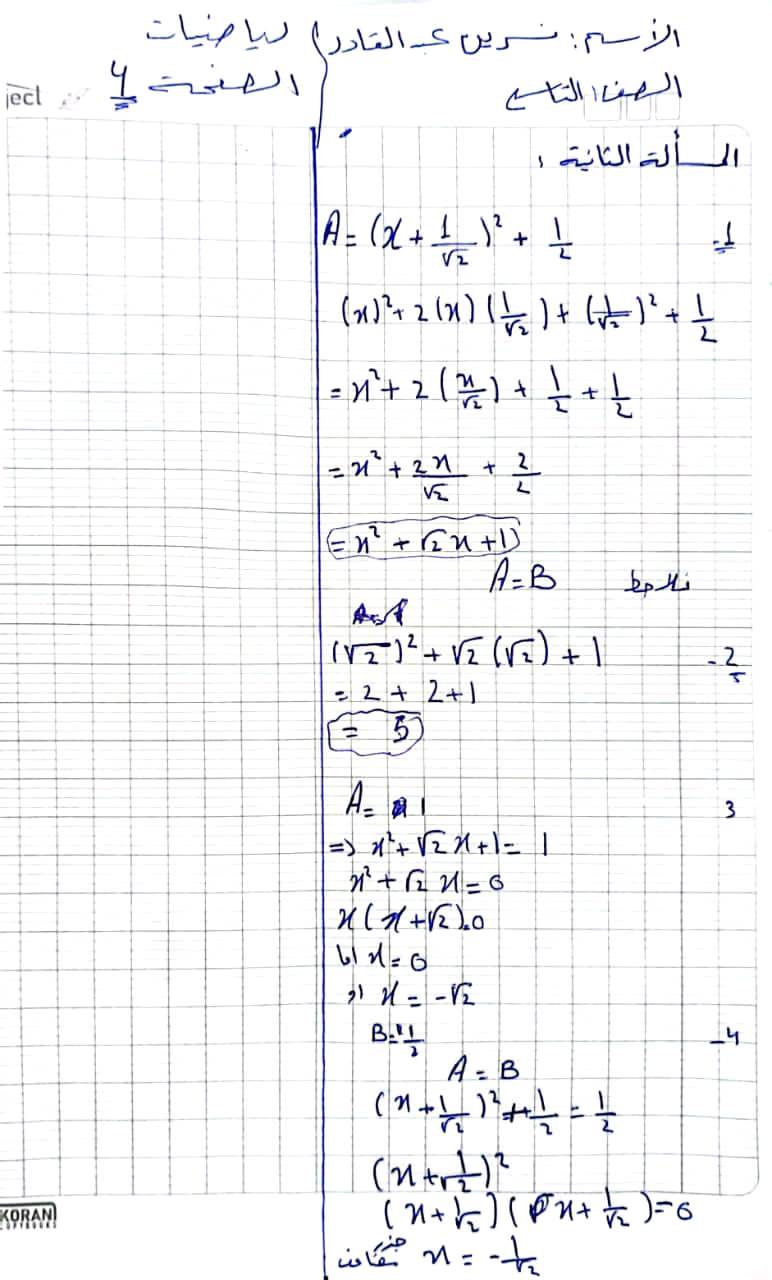 الأسم: نسرين عبد القادر / رياضيات
الصف: التاسع الصفحة 4
ject
المسألة الثانية:
1- A = (x + 1/√2)² + 1/2
(x)² + 2(x)(1/√2) + (1/√2)² + 1/2
= x² + 2(x/√2) + 1/2 + 1/2
= x² + 2x/√2 + 2/2
= x² + √2x + 1
نلاحظ A = B
2- (√2)² + √2(√2) + 1
= 2 + 2 + 1
= 5
3 A = 1
=> x² + √2x + 1 = 1
x² + √2 x = 0
x(x + √2) = 0
اما x = 0
او x = -√2
4- B = 1/2
A = B
(x + 1/√2)² + 1/2 = 1/2
(x + 1/√2)²
(x + 1/√2)(x + 1/√2) = 0
x = -1/√2
KORAN
COPYBOOKS